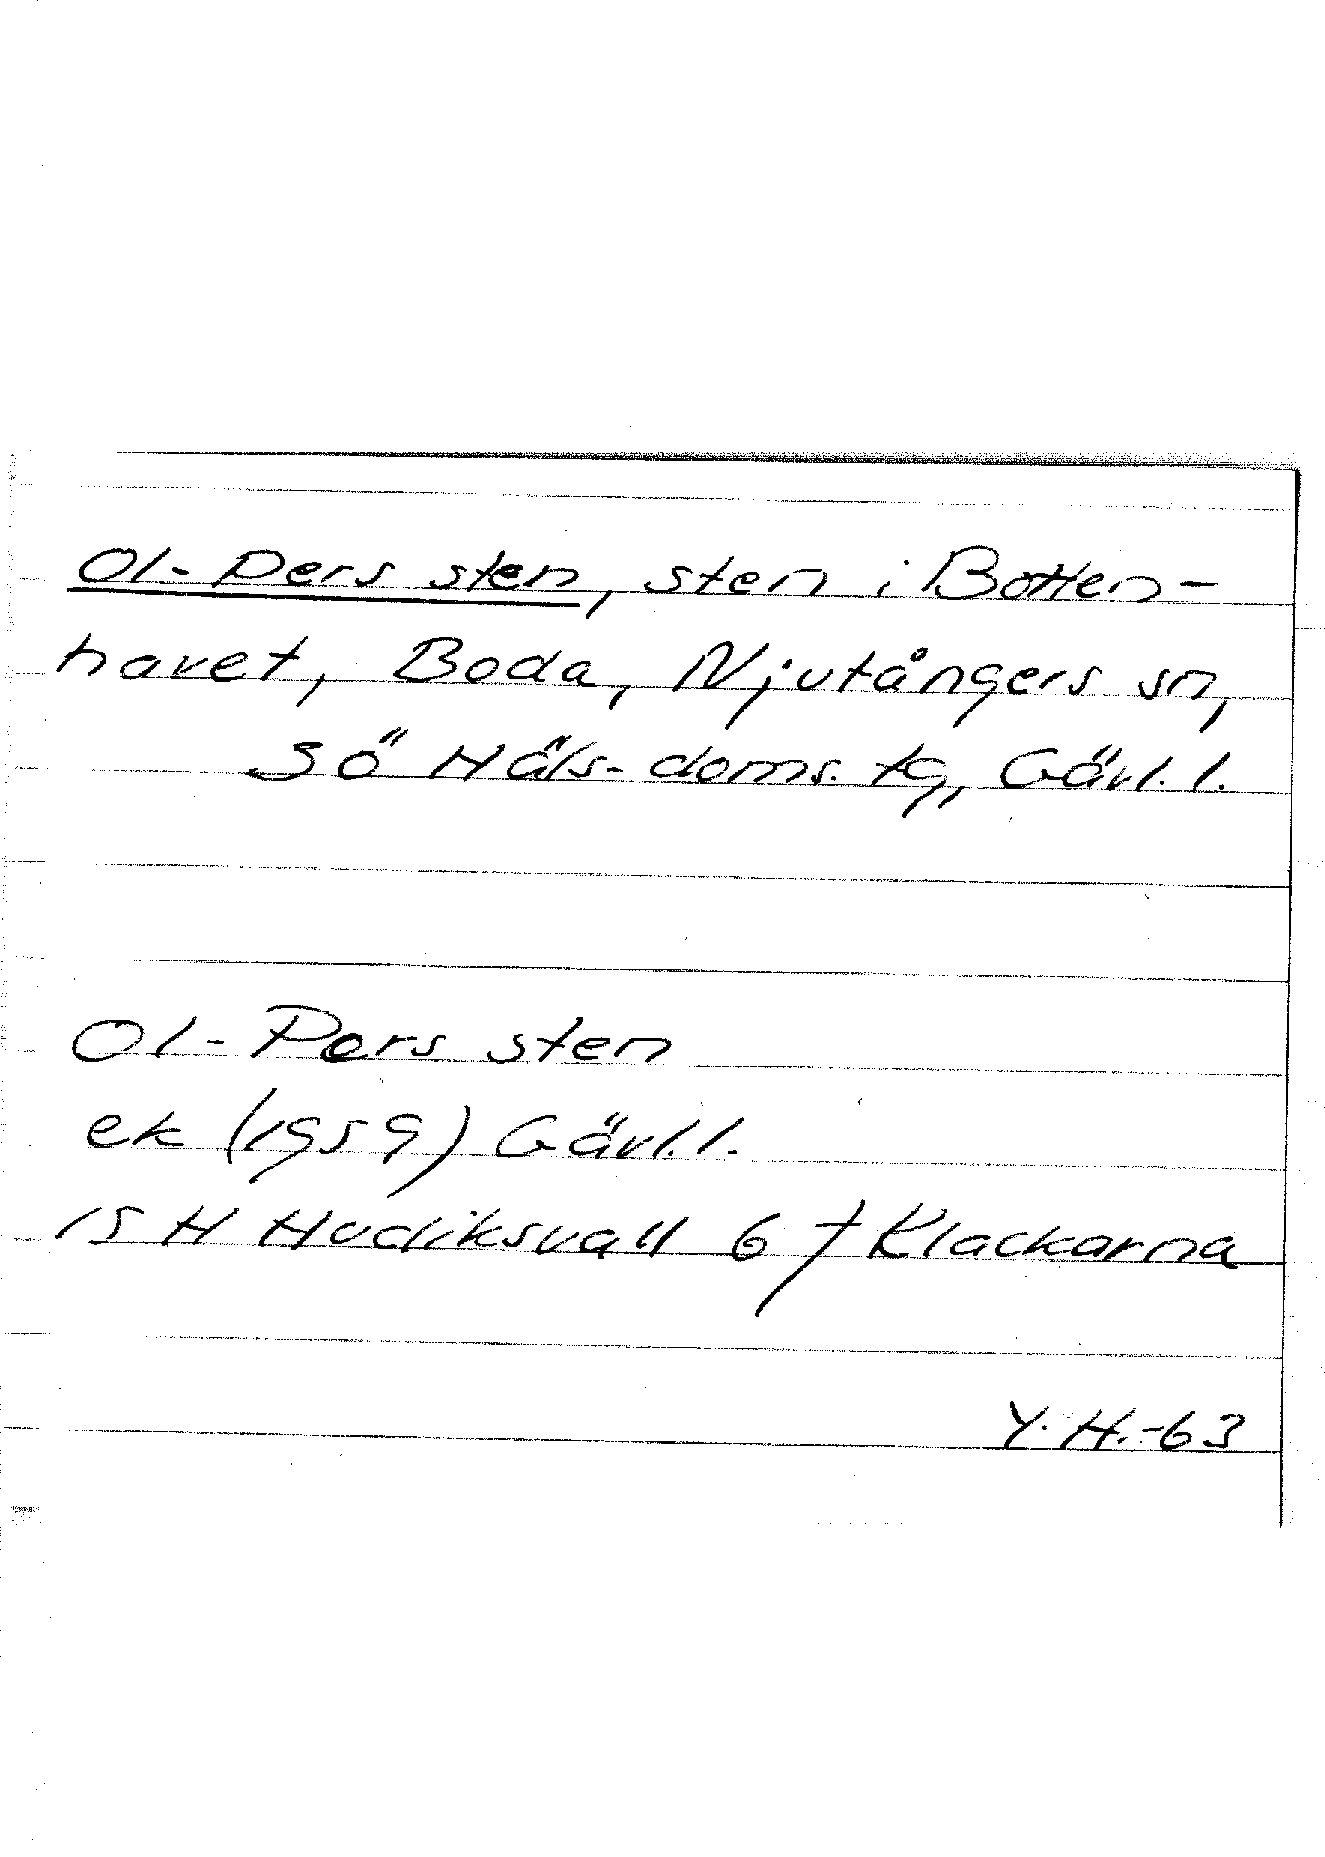 Ol-Pers sten, sten i Botten-
havet, Boda, Njutångers sn,
Sö Häls. doms. tg, Gävl. l.
Ol-Pers sten
ek (1959) Gävl. l.
15 H Hudiksvall 6 f Klackarna
Y. H. -63